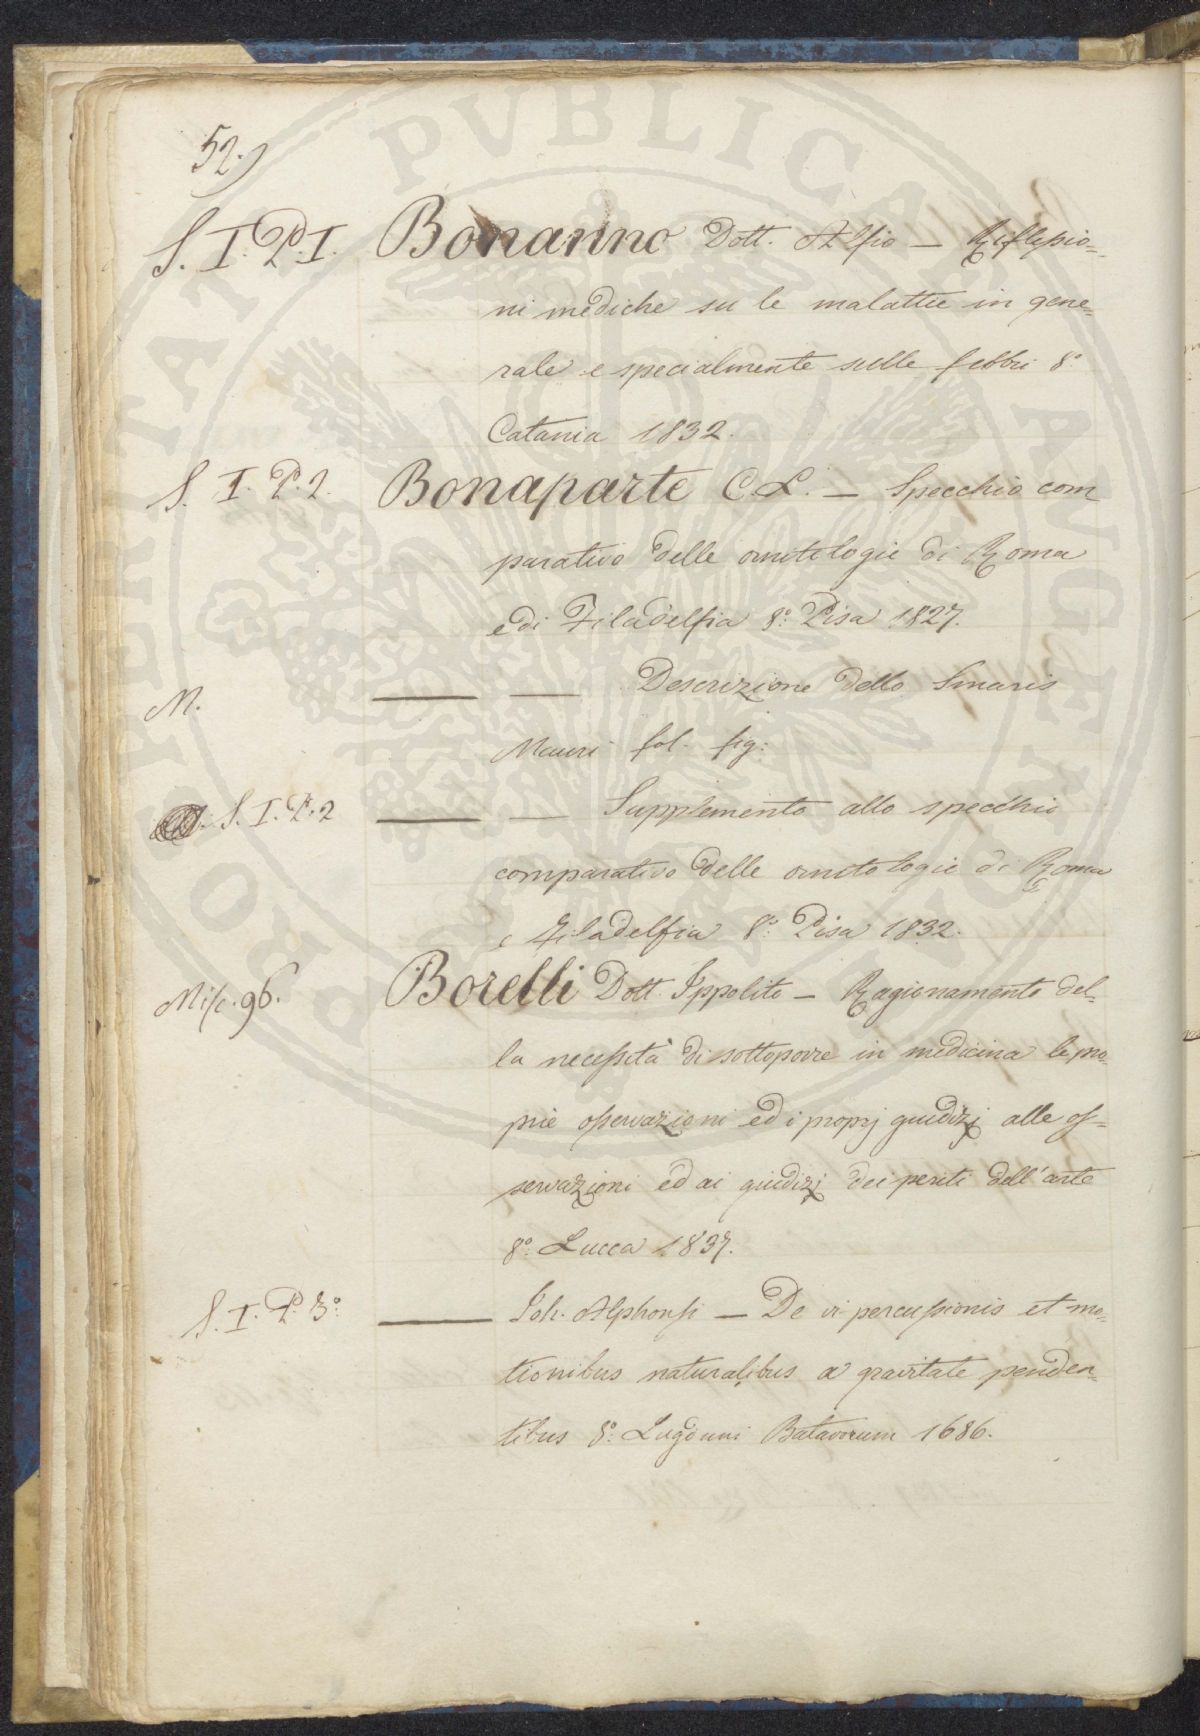 52.)
S. I. P. I. Bonanno Dott. Alfio — Riflessio=
ni mediche su le malattie in gene=
rale e specialmente sulle febbri 8.o
Catania 1832.
S. I. P. 2. Bonaparte C L. — Specchio com
parativo delle ornitologie di Roma
e di Filadelfia 8.o Pisa 1827.
M. —— — Descrizione dello Smaris
Mauri fol. fig:
S. I. P. 2 —— — Supplemento allo specchio
comparativo delle ornitologie di Roma
e Filadelfia 8.o Pisa 1832.
Misc. 96. Borelli Dott. Ippolito — Ragionamento del=
la necessità di sottoporre in medicina le pro=
prie osservazioni ed i proprj giudizj alle os=
servazioni ed ai giudizj dei periti dell'arte
8.o Lucca 1837.
S. I. P. 3.o —— Joh. Alphonsi — De vi percussionis et mo=
tionibus naturalibus a gravitate penden=
tibus 8.o Lugduni Batavorum 1686.
PROSPERITATI PVBLICAE AVGENDAE